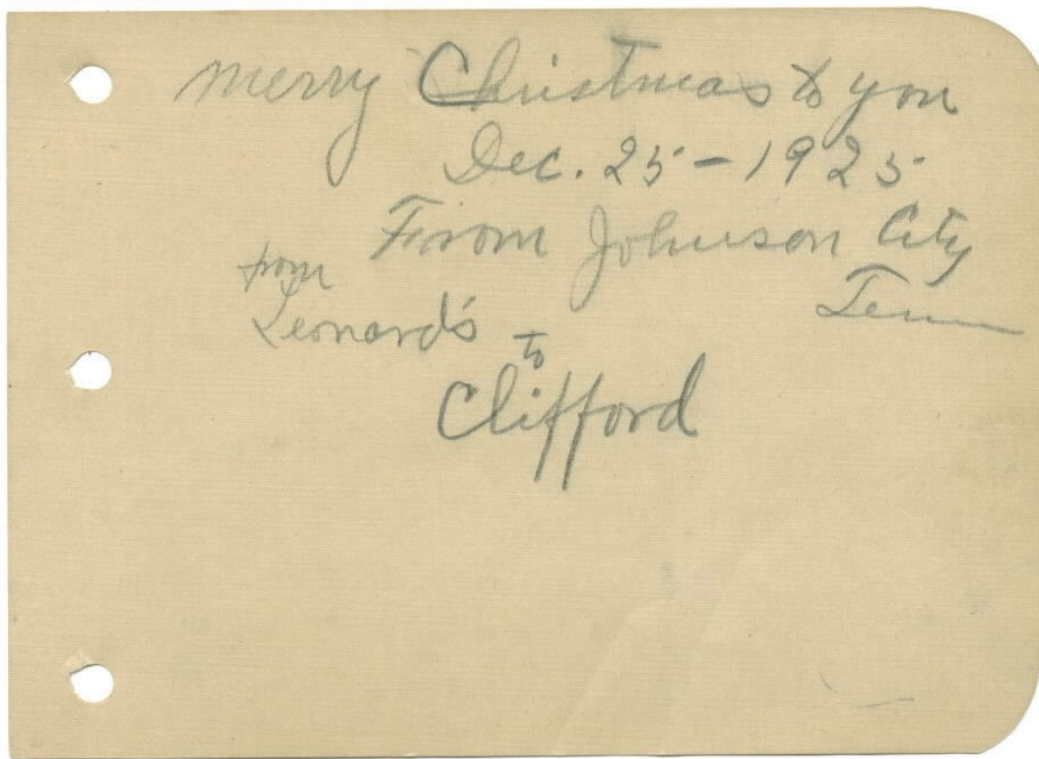 merry Christmas to you
Dec. 25 - 1925
From Johnson City
Tenn
from
Leonard's
to
Clifford